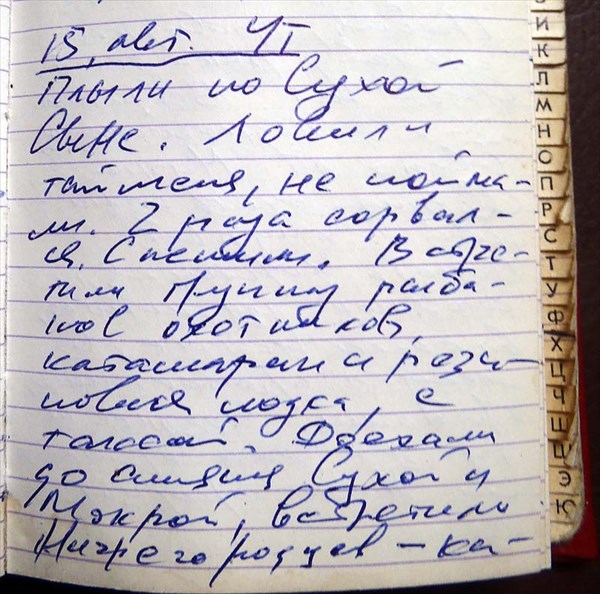 15, авг. ЧТ
Плыли по Сухой
Сыне. Ловили
тайменя, не пойма-
ли. 2 раза сорвал-
ся. Встре-
тили группу рыба-
ков охотников,
катамаран и рези-
новая лодка, с
Доехали
до слияния Сухой и
Мокрой, встретили
Нижегородцев – ка-
И
К
Л
М
Н
О
П
Р
С
Т
У
Ф
Х
Ц
Ч
Ш
Щ
Э
Ю